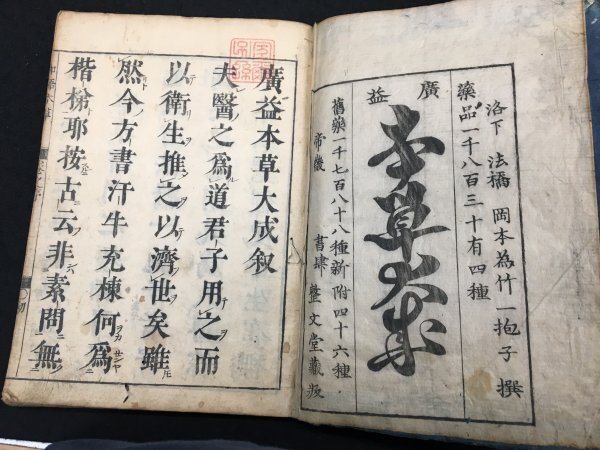 洛下 法橋 岡本為竹一抱子 撰
藥品一千八百三十有四種
廣益
本草大成
舊藥一千七百八十八種新附四十六種
帝畿 書肆 整文堂藏板
廣益本草大成叙
夫醫之爲道君子用之而
以衛生推之以濟世矣雖
然今方書汗牛充棟何爲
楷梯耶按古云非素問無